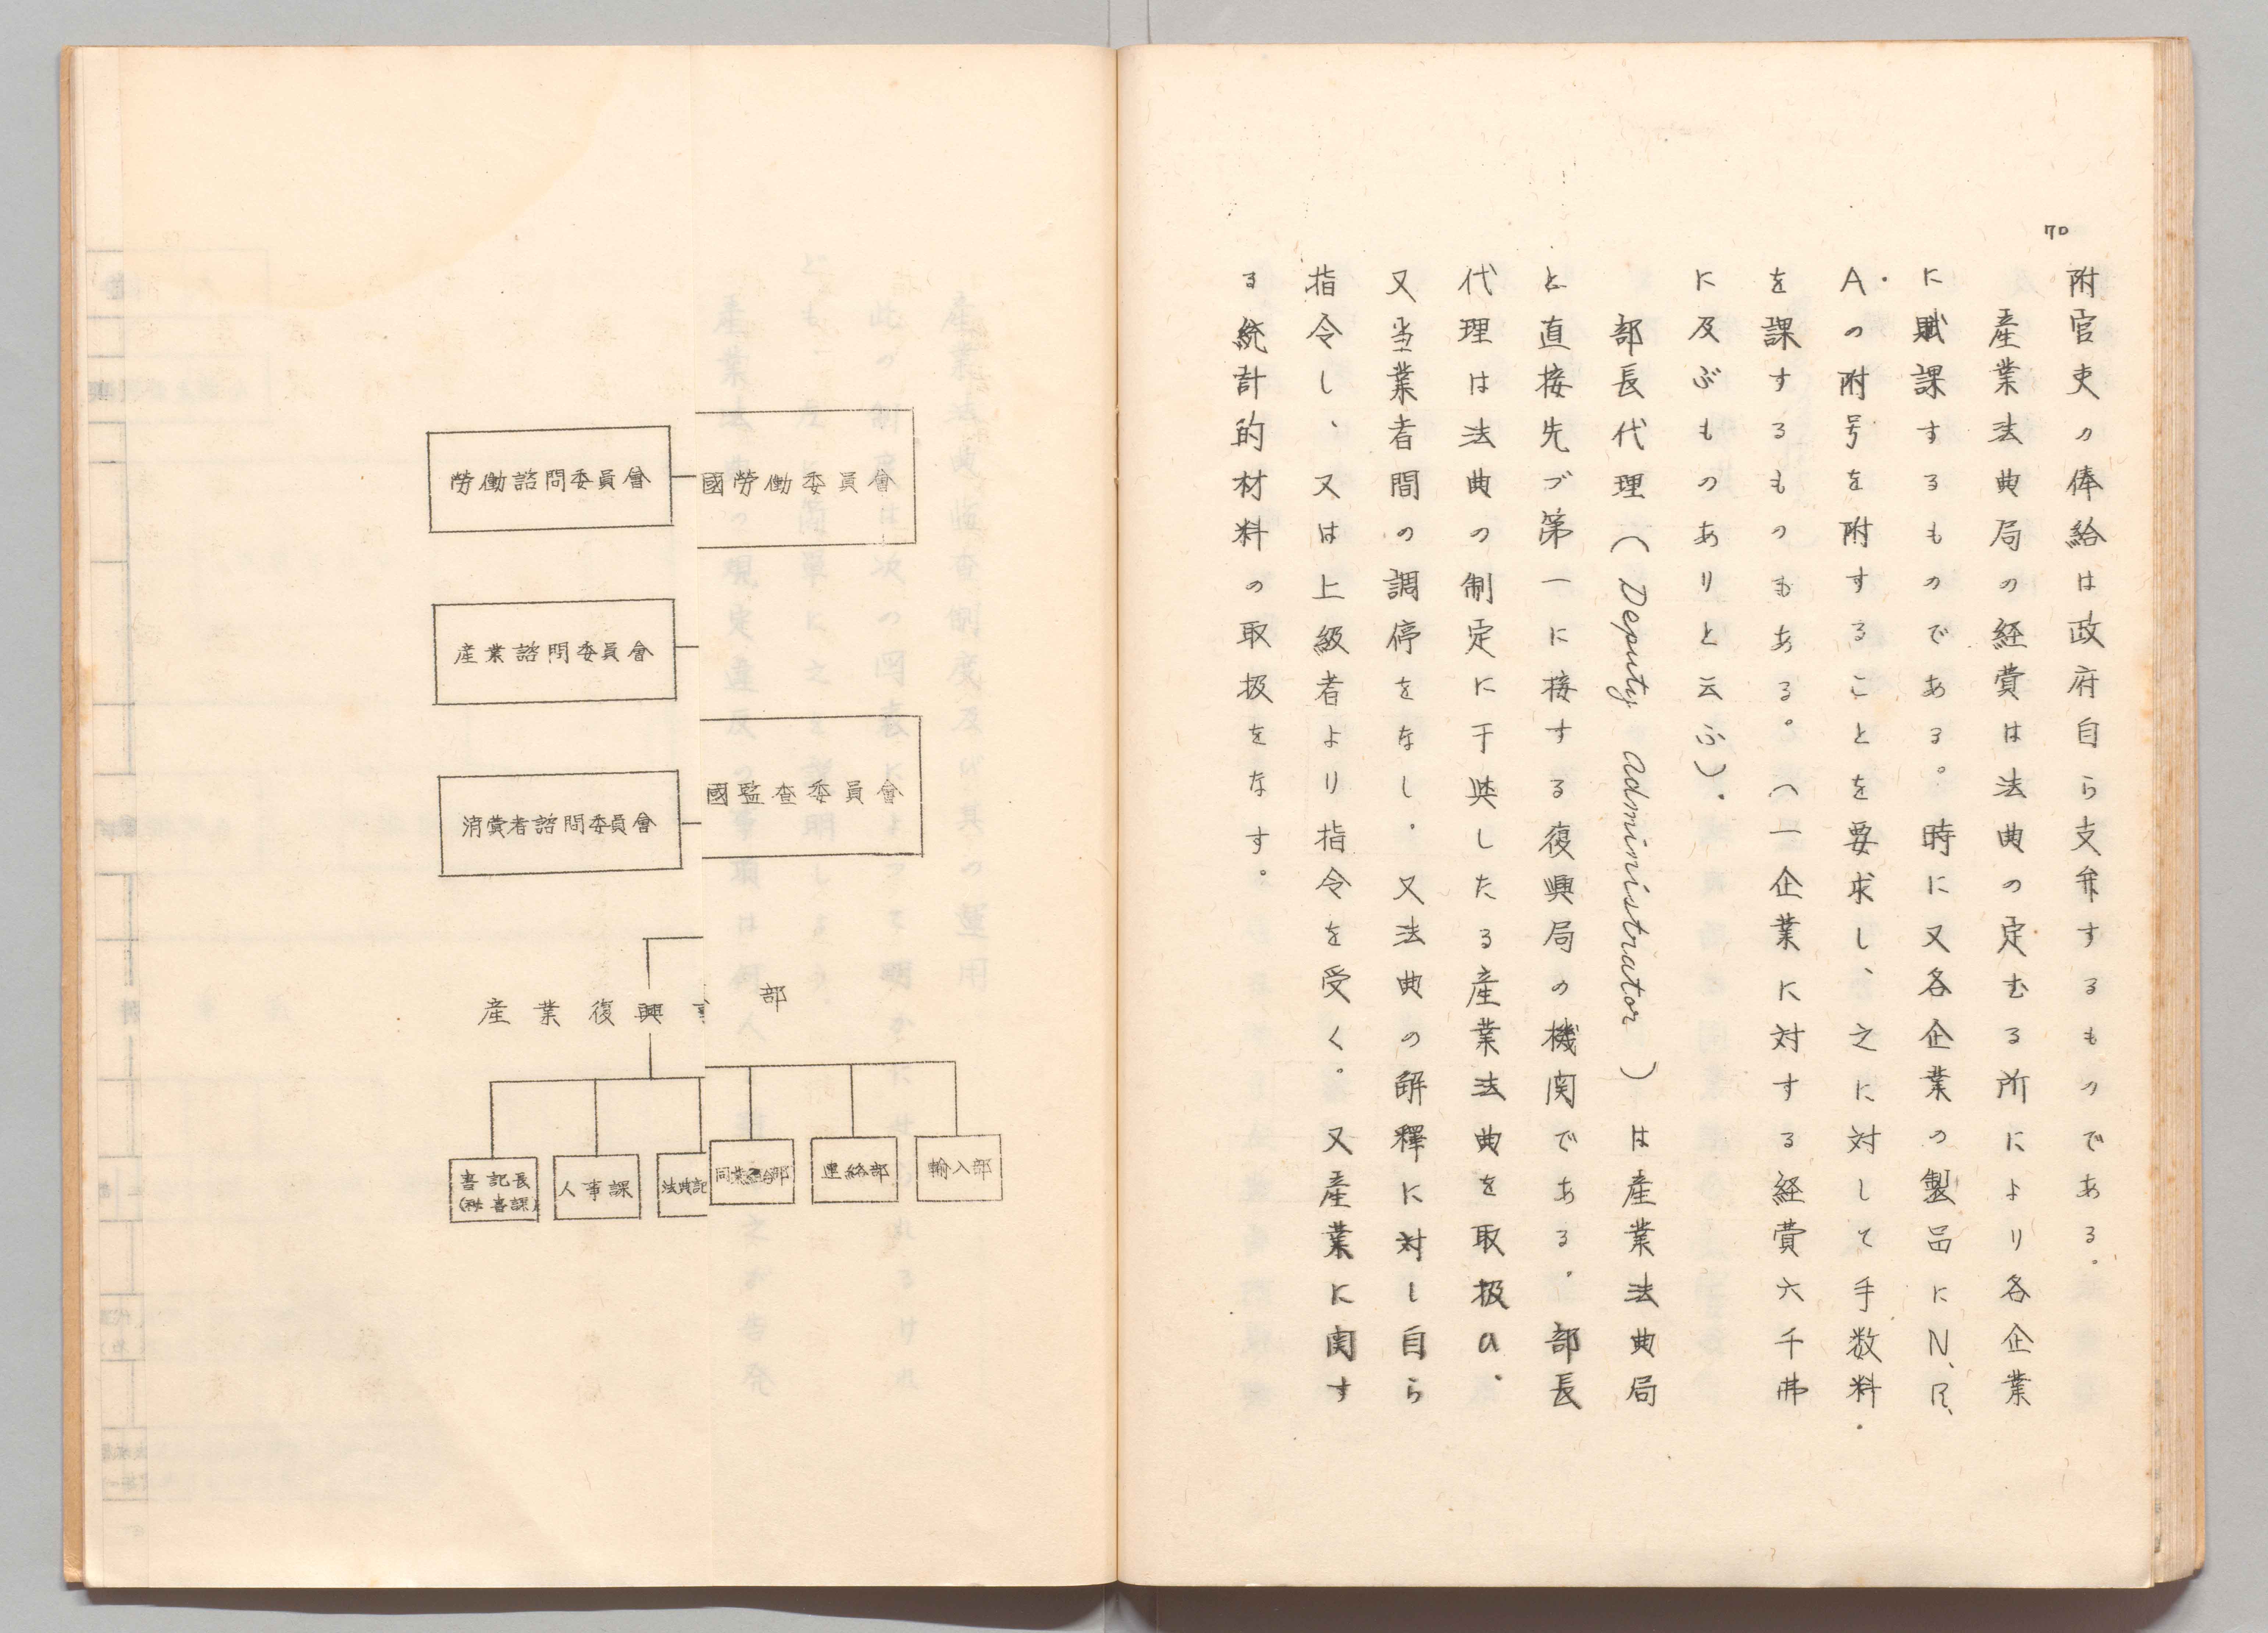 70
附官吏の俸給は政府自ら支弁するものである.
産業法典局の経費は法典の定むる所により各企業
に賦課するものである。時に又各企業の製品にN、R、
A.の附号を附することを要求し、之に対して手数料.
を課するものもある。(一企業に対する経費六千弗
に及ぶものありと云ふ).
部長代理(Deputy administrator)は産業法典局
と直接先づ第一に接する復興局の機関である.部長
代理は法典の制定に干與したる産業法典を取扱ひ.
又当業者間の調停をなし.又法典の解釋に対し自ら
指令し、又は上級者より指令を受く。又産業に関す
る統計的材料の取扱をなす。
國勞働委員會
勞働諮問委員會
産業諮問委員會
國監査委員會
消費者諮問委員會
産業復興
部
書記長
(秘書課)
人事課
法典記
連絡部
輸入部